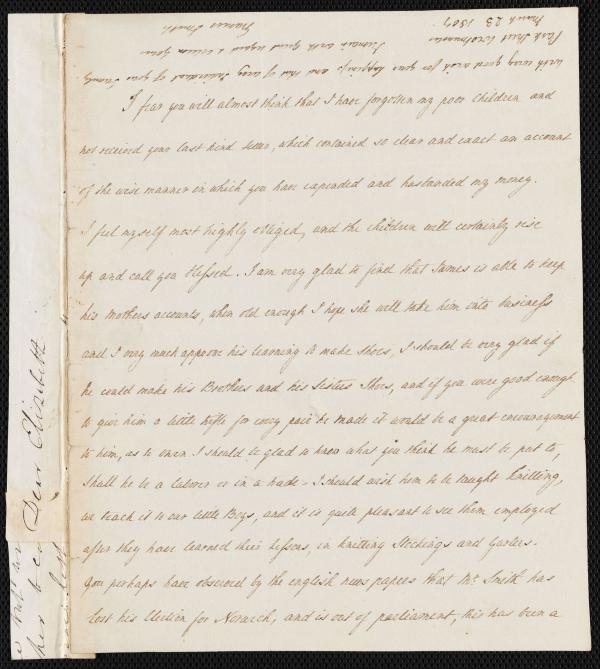 I fear you will almost think that I have forgotten my poor children and
not received your last kind letter, which contained so clear and exact an account
of the wise manner in which you have expended and husbanded my money.
I feel myself most highly obliged, and the children will certainly rise
up and call you blessed. I am very glad to find that James is able to keep
his Mothers accounts, when old enough I hope she will take him into business
and I very much approve his learning to make Shoes, I should be very glad if
he could make his Brothers and his Sisters Shoes, and if you were good enough
to give him a little trifle for every pair he made it would be a great encouragement
to him, as to Owen I should be glad to know what you think he must be put to,
Shall he be a laborer or in a trade - I should wish them to be taught Knitting,
we teach it to our little Boys, and it is quite pleasant to see them employed
after they have learned their lessons, in knitting Stockings and Garters.
You perhaps have observed by the english news papers that Mr. Smith has
lost his Election for Norwich, and is out of parliament, this has been a
with every good wish for your happiness and that of every Individual of your Family
I remain with great regard & esteem yours
Frances Smith
Park Street Westminster
March 23 1807
Dear Elizabeth